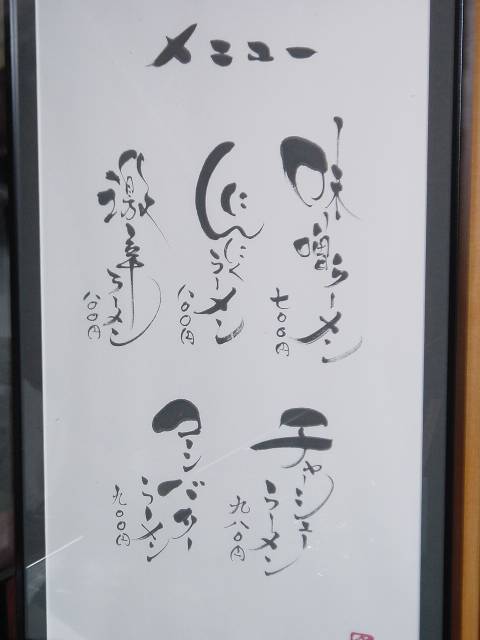 メニュー
味噌ラーメン
七〇〇円
にんにくラーメン
八〇〇円
激辛ラーメン
八〇〇円
チャーシューラーメン
九八〇円
コーンバターラーメン
九〇〇円